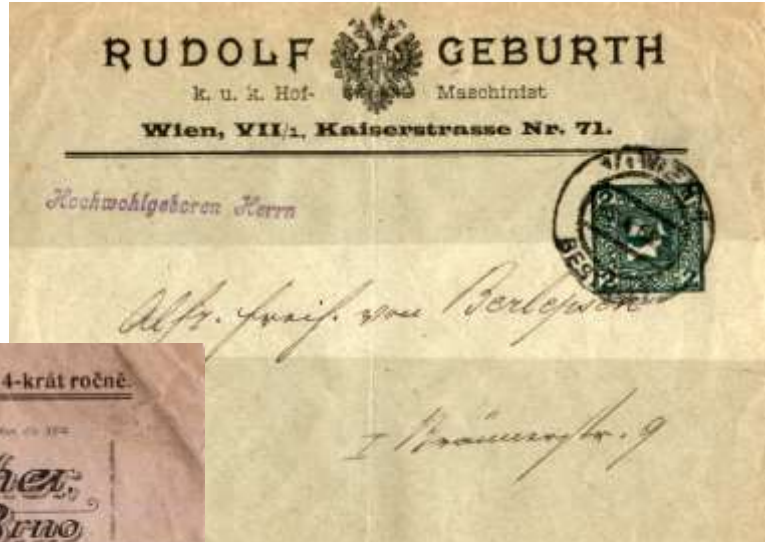 RUDOLF GEBURTH
k. u. k. Hof- Maschinist
Wien, VII/1, Kaiserstrasse Nr. 71.
Hochwohlgeboren Herrn
2 2
2 2
WIEN
BEST
Alfr. Freih. von Berlepsch
I Bräunerstr. 9
4-krát ročně.
her,
Brno